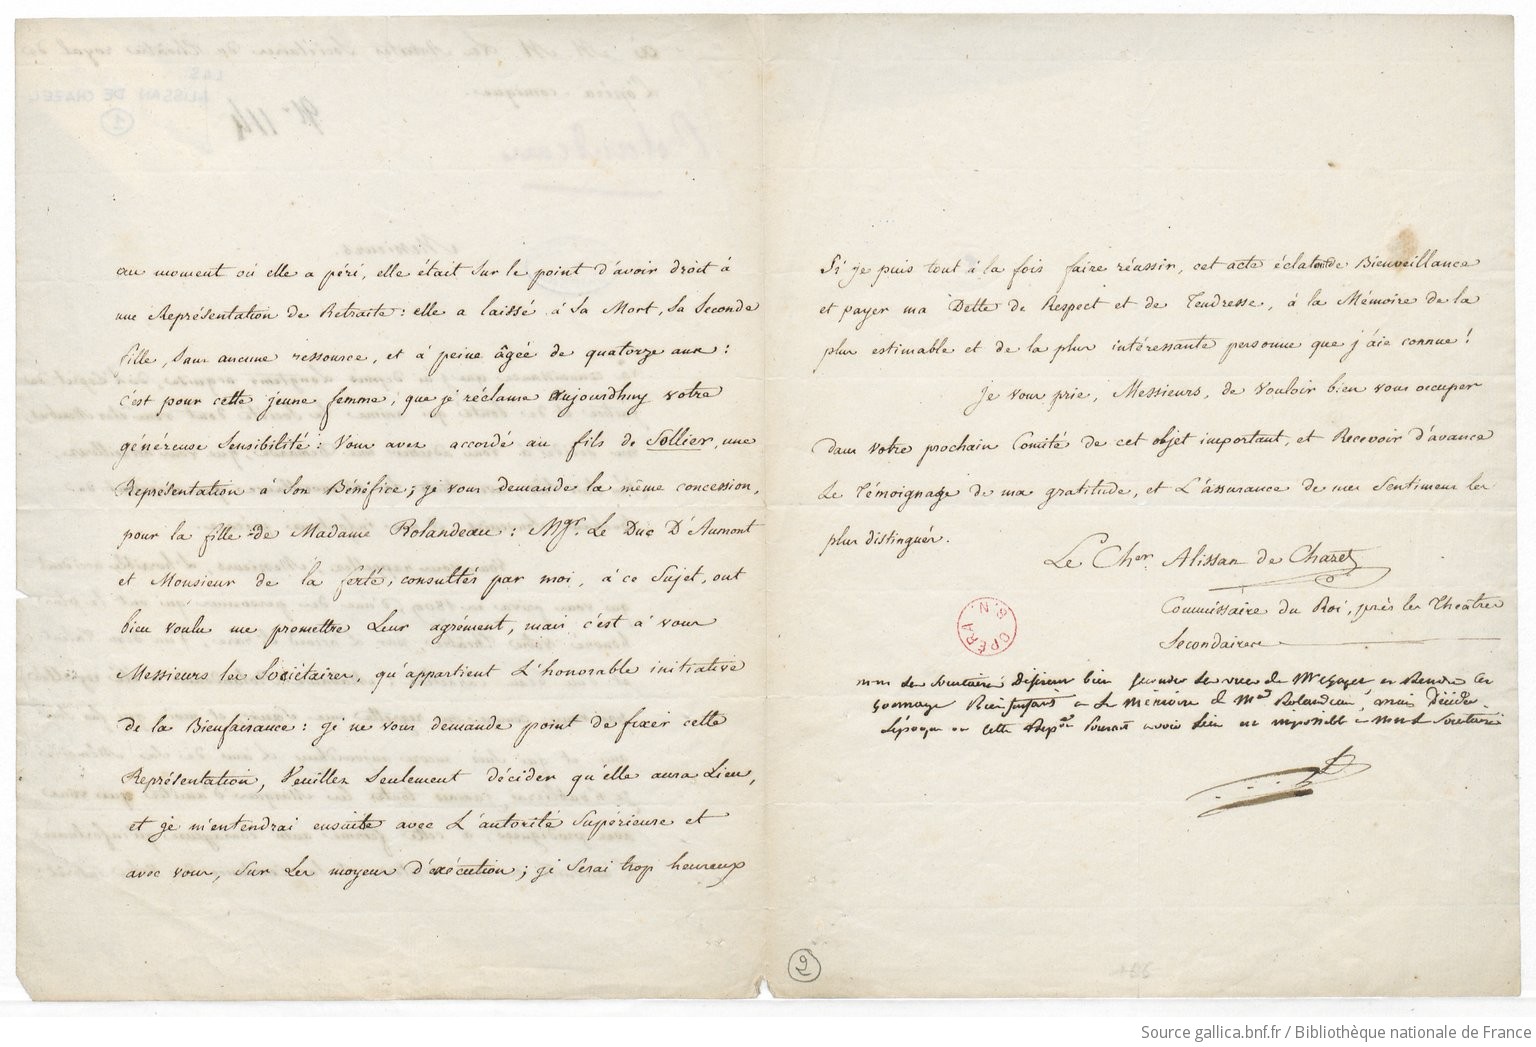 au moment où elle a péri, elle était sur le point d'avoir droit à
une Représentation de Retraite : elle a laissé à sa Mort, sa seconde
fille, sans aucune ressource, et à peine âgée de quatorze ans :
c'est pour cette jeune femme, que je réclame aujourdhuy votre
généreuse sensibilité : Vous avez accordé au fils de Sollier, une
Représentation à son Bénéfice ; je vous demande la même concession,
pour la fille de Madame Rolandeau : Mgr. Le Duc D'Aumont
et Monsieur de la ferté, consultés par moi, à ce sujet, ont
bien voulu me promettre leur agrément, mais c'est à vous
Messieurs les Sociétaires, qu'appartient l'honorable initiative
de la Bienfaisance : je ne vous demande point de fixer cette
Représentation, Veuillez seulement décider qu'elle aura lieu,
et je m'entendrai ensuite avec l'autorité supérieure et
avec vous, sur les moyens d'exécution ; je serai trop heureux
Si je puis tout à la fois faire réussir, cet acte éclatant de Bienveillance
et payer ma Dette de Respect et de Tendresse, à la Mémoire de la
plus estimable et de la plus intéressante personne que j'aie connue !
Je vous prie, Messieurs, de vouloir bien vous occuper
dans votre prochain Comité de cet objet important, et Recevoir d'avance
le Témoignage de ma gratitude, et l'assurance de mes sentimens les
plus distingués.
Le Cher Alissan de Chazet
Commissaire du Roi, près les Théâtres
Secondaires
OPERA B.N.
mm les Sociétaires Désirent bien seconder les vues de Mr Chazet et Rendre cet
hommage à la Mémoire de Me Rolandeau, mais Décider
l'époque où cette Repon pourrait avoir lieu est impossible à MM les Sociétaires
2
Source gallica.bnf.fr / Bibliothèque nationale de France